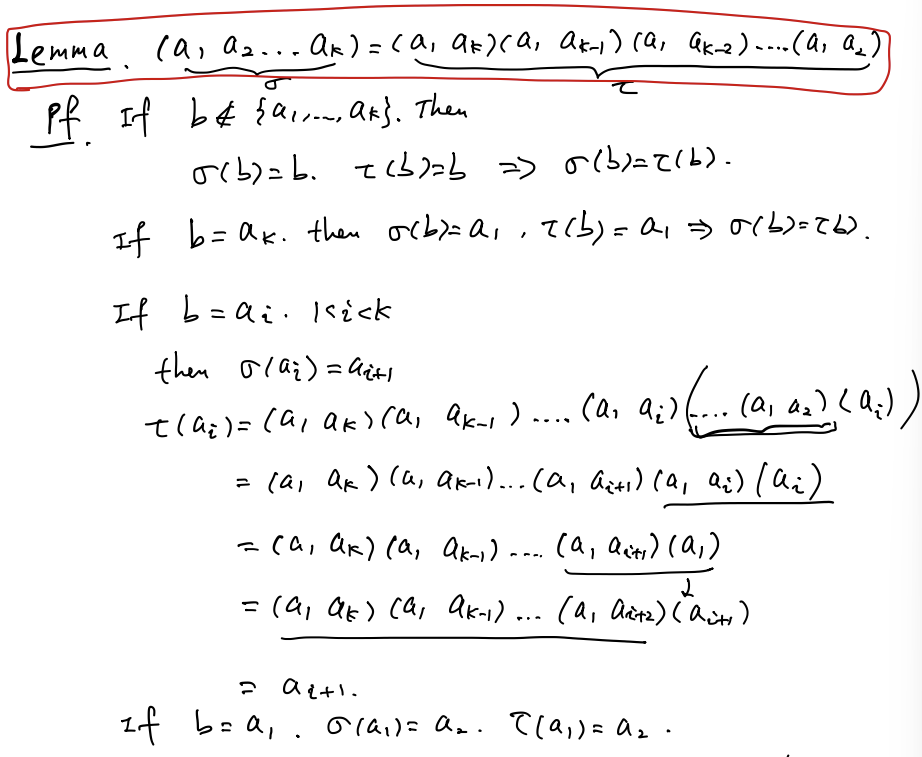 Lemma. (a₁ a₂ ... aₖ) = (a₁ aₖ)(a₁ aₖ₋₁)(a₁ aₖ₋₂)....(a₁ a₂)
σ τ
Pf. If b ∉ {a₁,...,aₖ}. Then
σ(b)=b. τ(b)=b ⇒ σ(b)=τ(b).
If b=aₖ. then σ(b)=a₁, τ(b)=a₁ ⇒ σ(b)=τb).
If b=aᵢ. 1<i<k
then σ(aᵢ)=aᵢ₊₁
τ(aᵢ)=(a₁ aₖ)(a₁ aₖ₋₁)....(a₁ aᵢ)(....(a₁ a₂)(aᵢ))
= (a₁ aₖ)(a₁ aₖ₋₁)...(a₁ aᵢ₊₁)(a₁ aᵢ)(aᵢ)
= (a₁ aₖ)(a₁ aₖ₋₁)....(a₁ aᵢ₊₁)(a₁)
↓
= (a₁ aₖ)(a₁ aₖ₋₁)...(a₁ aᵢ₊₂)(aᵢ₊₁)
= aᵢ₊₁.
If b=a₁. σ(a₁)=a₂. τ(a₁)=a₂.